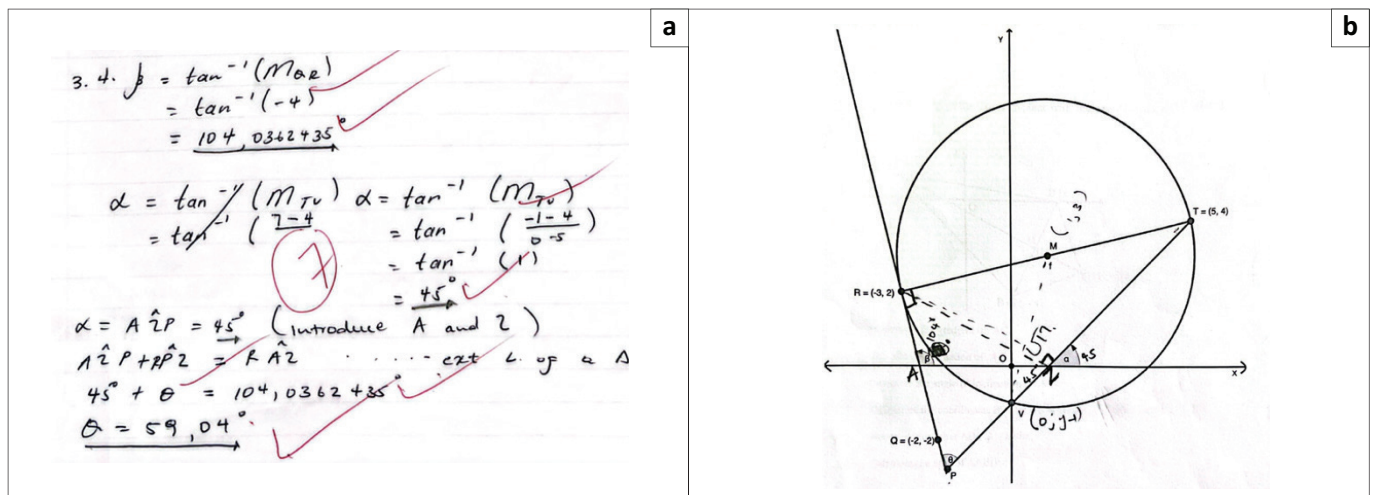 a
3.4. β = tan⁻¹(M_QR)
= tan⁻¹(-4)
= 104,0362435°
α = tan⁻¹ (M_TV) α = tan⁻¹ (M_TV)
= tan⁻¹ (7-4 = tan⁻¹ (-1-4 / 0-5)
7
= tan⁻¹ (1)
= 45°
α = AẐP = 45° (introduce A and Z)
AẐP + RP̂Z = RÂZ ...... ext ∠ of a Δ
45° + θ = 104,0362435°
θ = 59,04°
b
Y
(1;3)
T = (5, 4)
M
R = (-3, 2)
104°
O
β
45
α
45
A
Z
X
V
(0;-1)
Q = (-2, -2)
θ
P